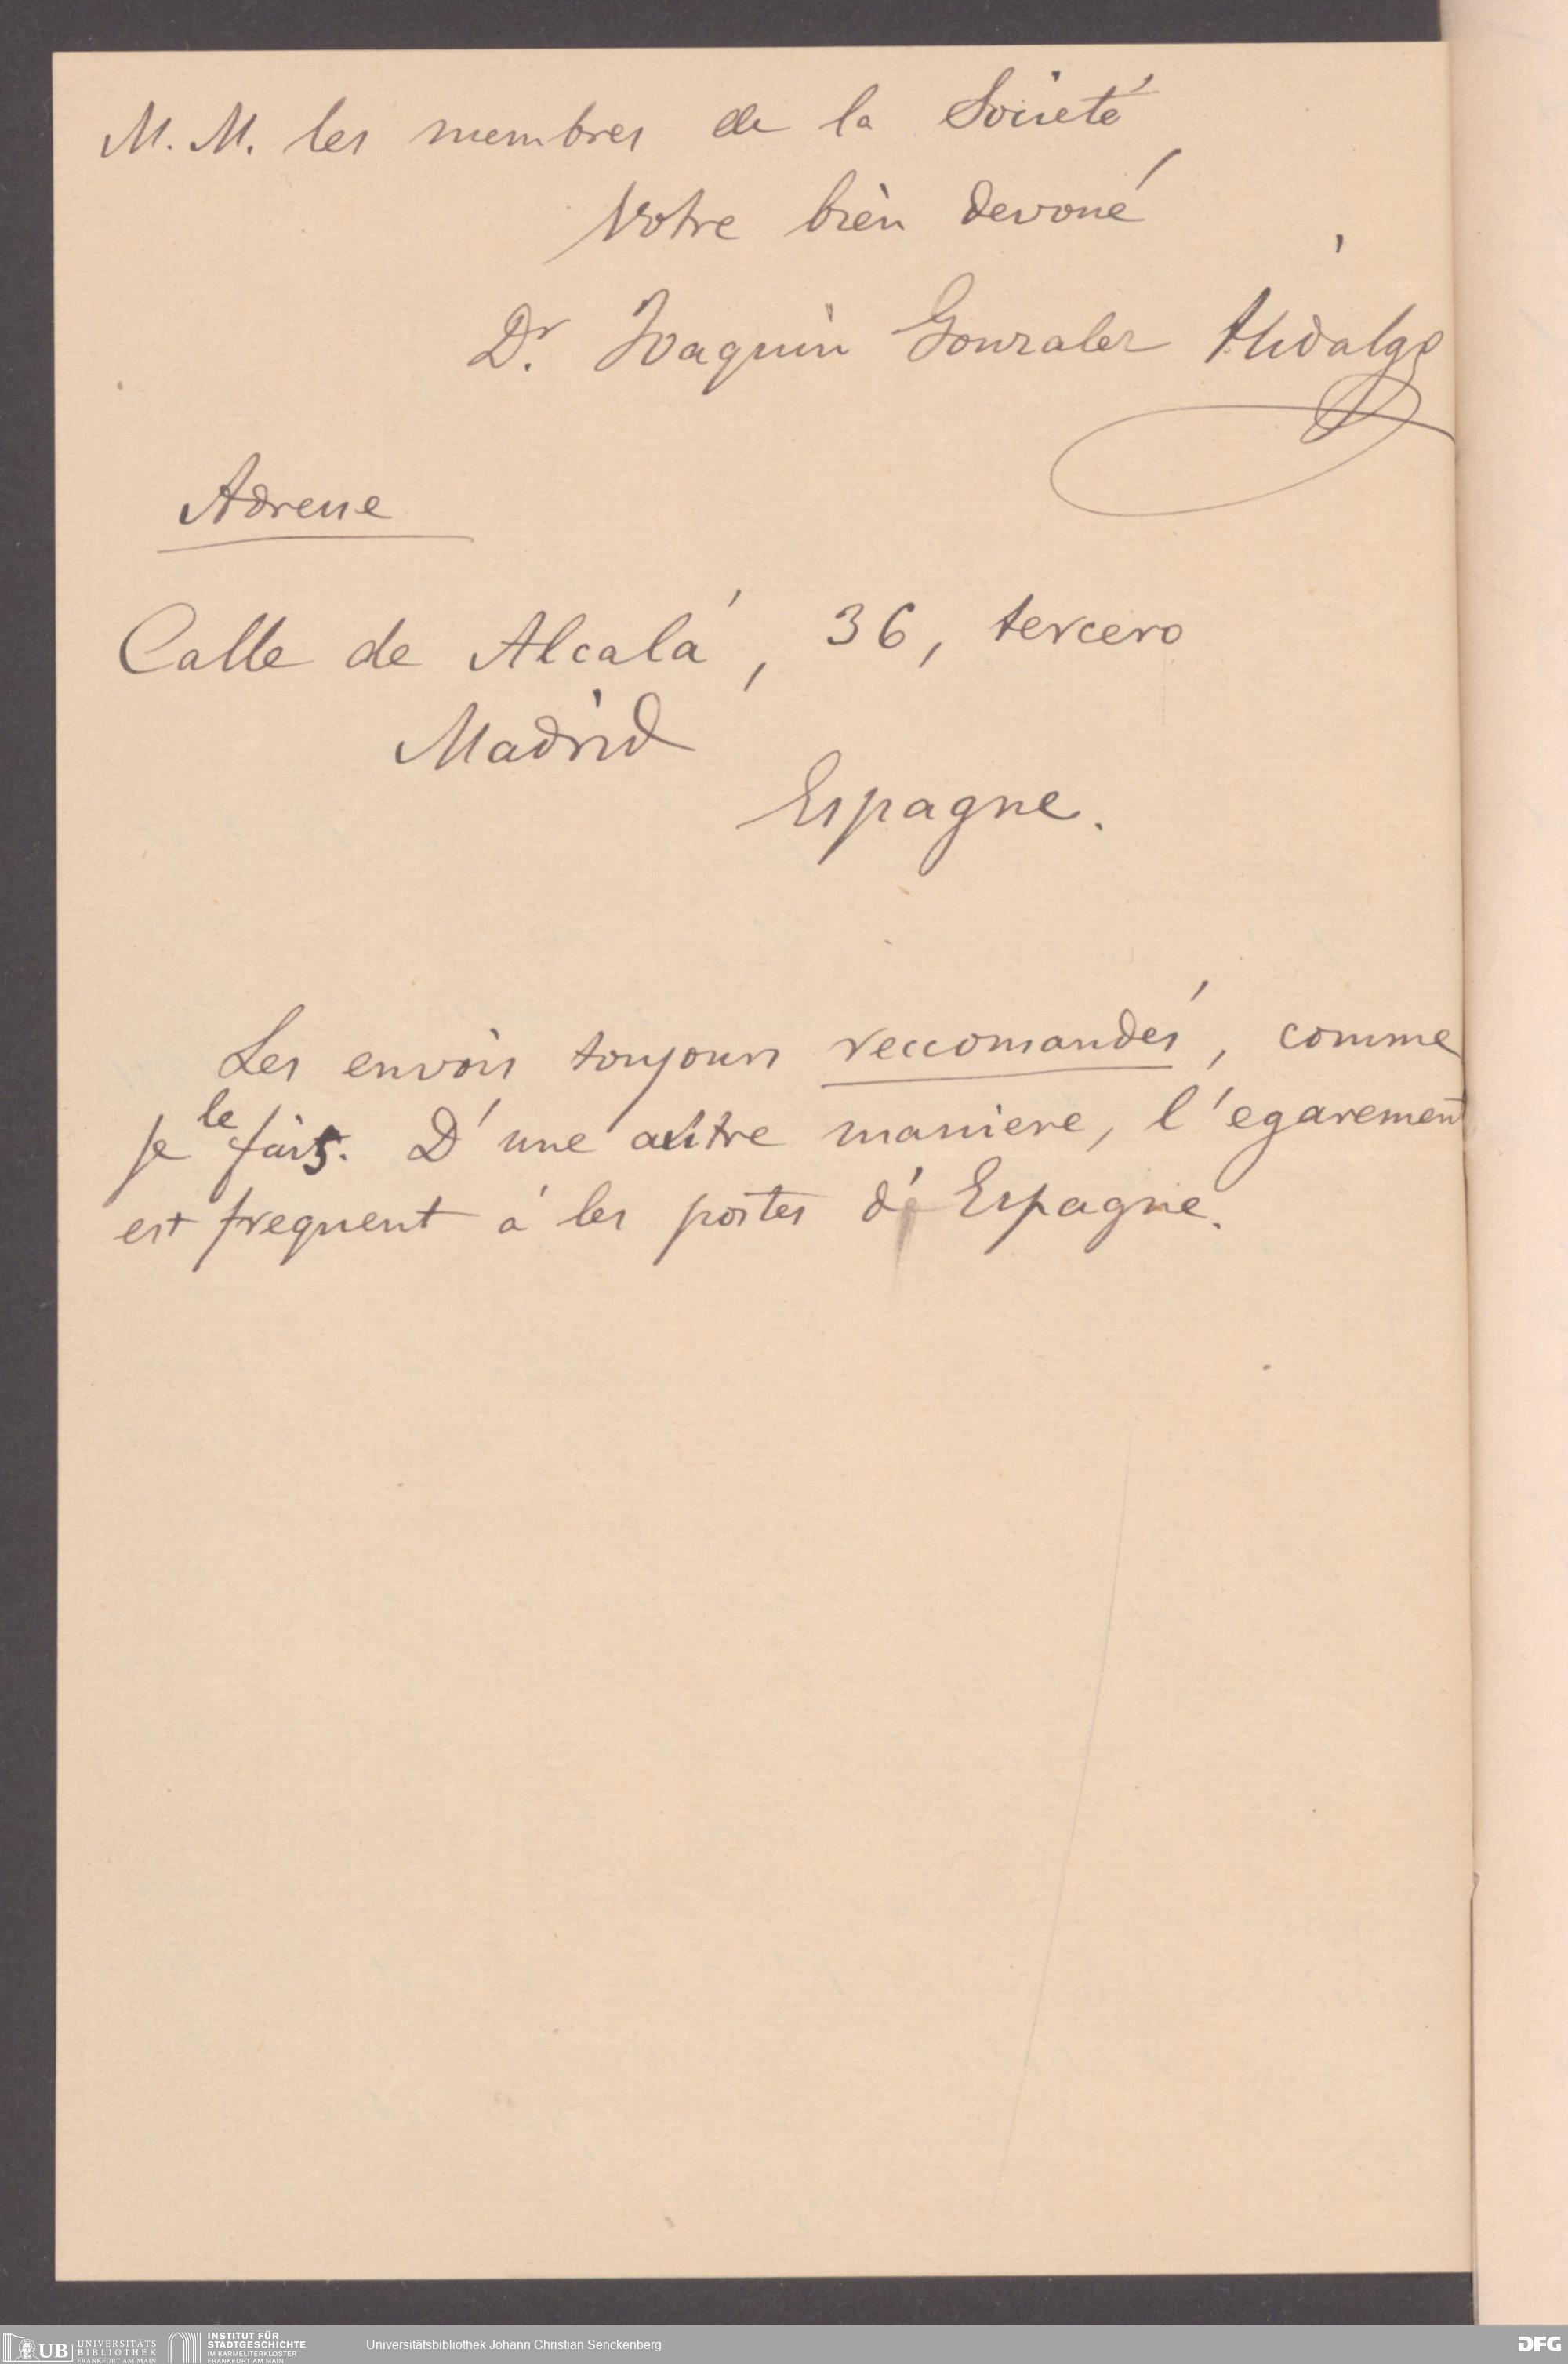 M. M. les membres de la Societé
Votre bien devoué
Dr. Joaquin Gonzalez Hidalgo
Adresse
Calle de Alcalá, 36, tercero
Madrid
Espagne.
Les envois toujours reccomandés, comme
je le fais. D'une autre maniere, l'egarement
est frequent á les postes d'Espagne.
UB UNIVERSITÄTS BIBLIOTHEK FRANKFURT AM MAIN
INSTITUT FÜR STADTGESCHICHTE IM KARMELITERKLOSTER FRANKFURT AM MAIN
Universitätsbibliothek Johann Christian Senckenberg
DFG